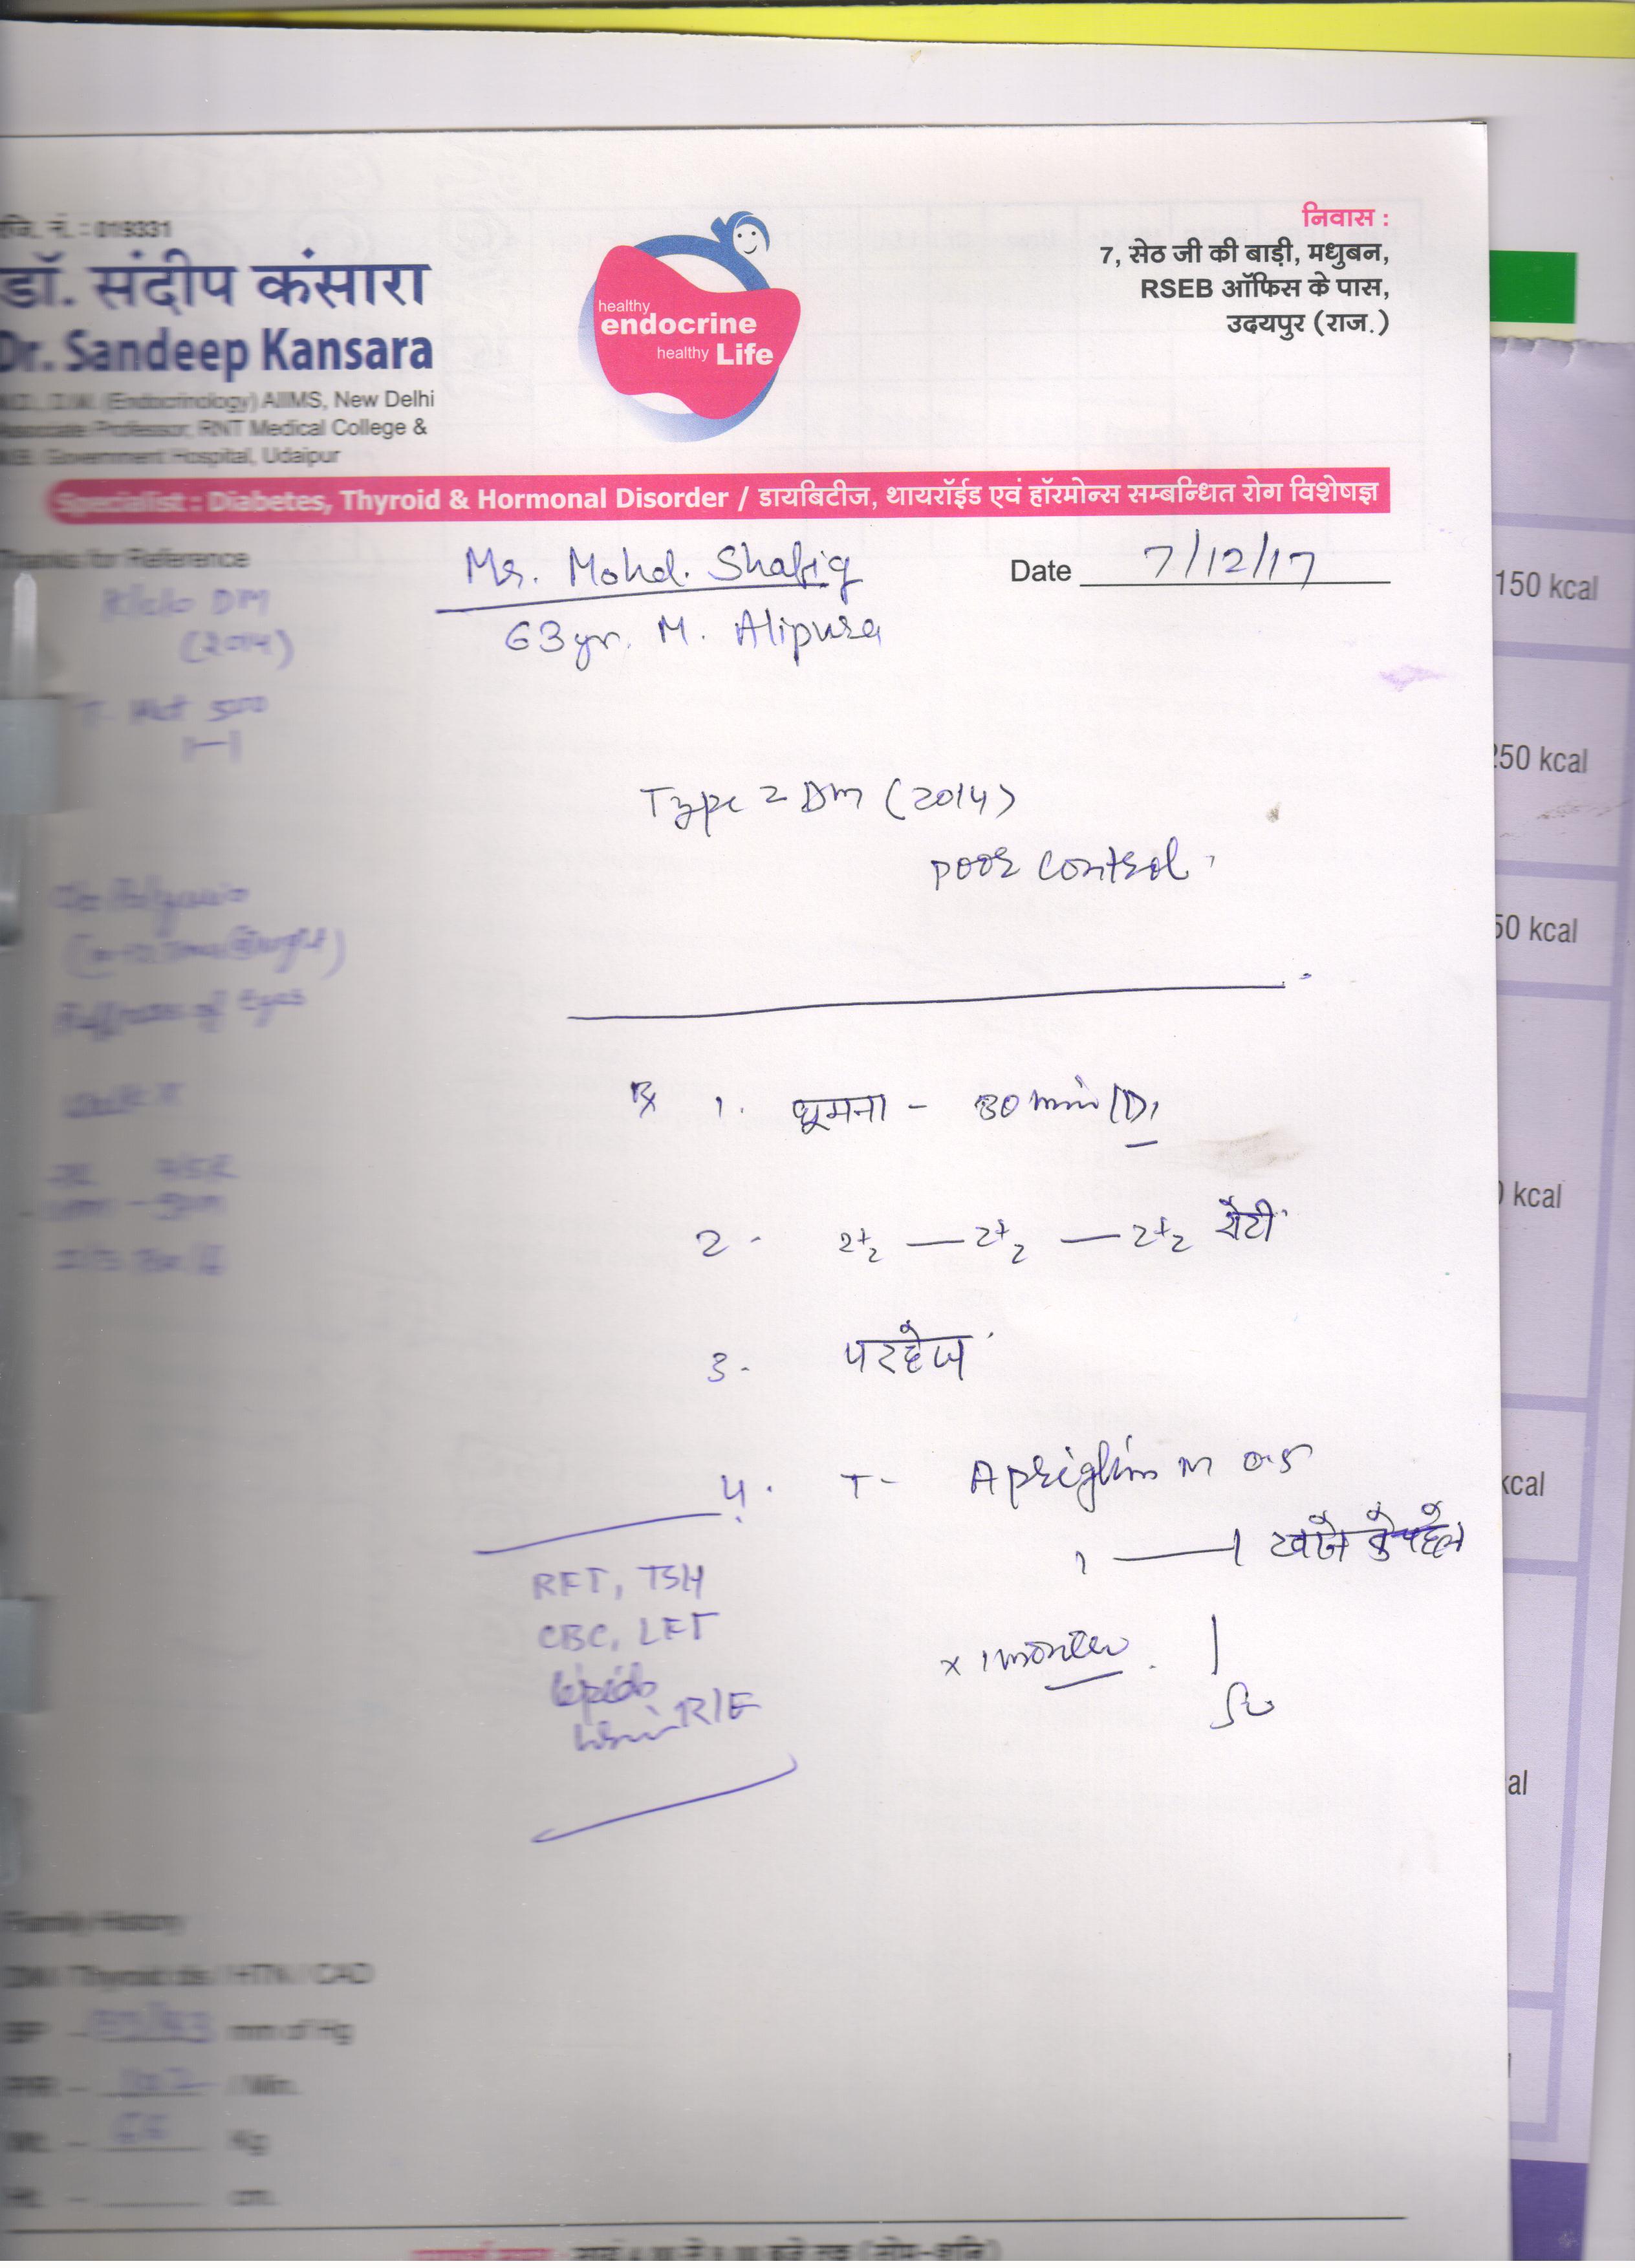 रजि. नं. : 019331
डॉ. संदीप कंसारा
Dr. Sandeep Kansara
M.D., D.M. (Endocrinology) AIIMS, New Delhi
Associate Professor, RNT Medical College &
M.B. Government Hospital, Udaipur
healthy
endocrine
healthy Life
निवास :
7, सेठ जी की बाड़ी, मधुबन,
RSEB ऑफिस के पास,
उदयपुर (राज.)
Specialist : Diabetes, Thyroid & Hormonal Disorder / डायबिटीज, थायरॉईड एवं हॉरमोन्स सम्बन्धित रोग विशेषज्ञ
Thanks for Reference
Mr. Mohd. Shafiq
Date 7/12/17
63 yr. M. Alipura
K/c/o DM
(2014)
T- Met 500
1—1
Type 2 DM (2014)
poor control
Puffiness of Eyes
Rx 1. घूमना - 30 min/D
2- 2½ — 2½ — 2½ रोटी
3- परहेज
4. T- Apriglim M 0.5
1 — 1 खाने के पहले
x 1 month.
RFT, TSH
CBC, LFT
Lipids
Urine R/E
Family History
DM / Thyroid dis / HTN / CAD
BP - mm of Hg
PR - 102 / Min.
Wt. - Kg
Ht. - cm.
150 kcal
250 kcal
50 kcal
0 kcal
kcal
al